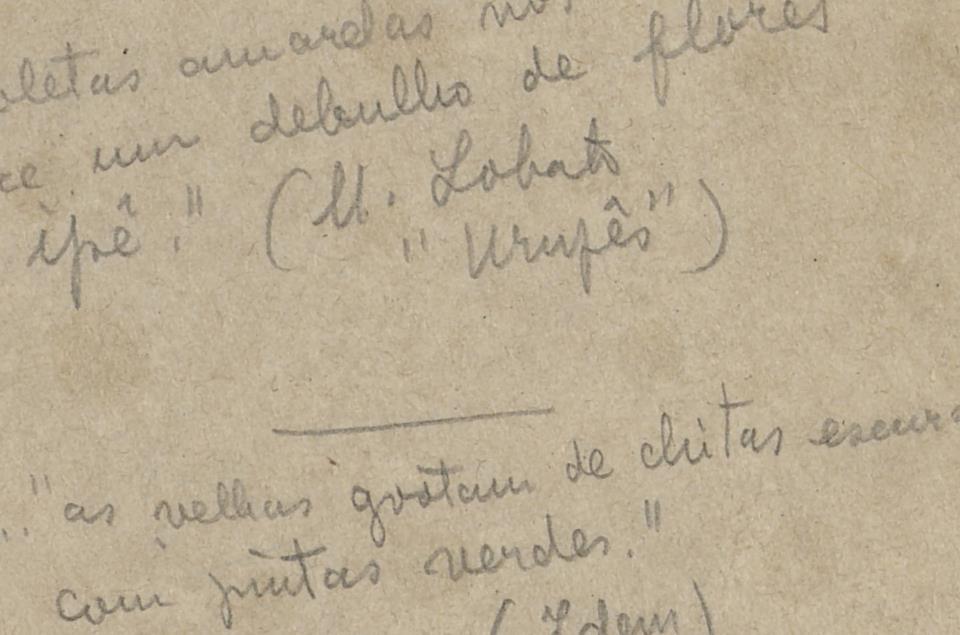 amarelas nos
um debulho de flores
ipê." (M. Lobato
"Urupês")
.."as velhas gostam de chitas escuras
com pintas verdes."
(Idem)